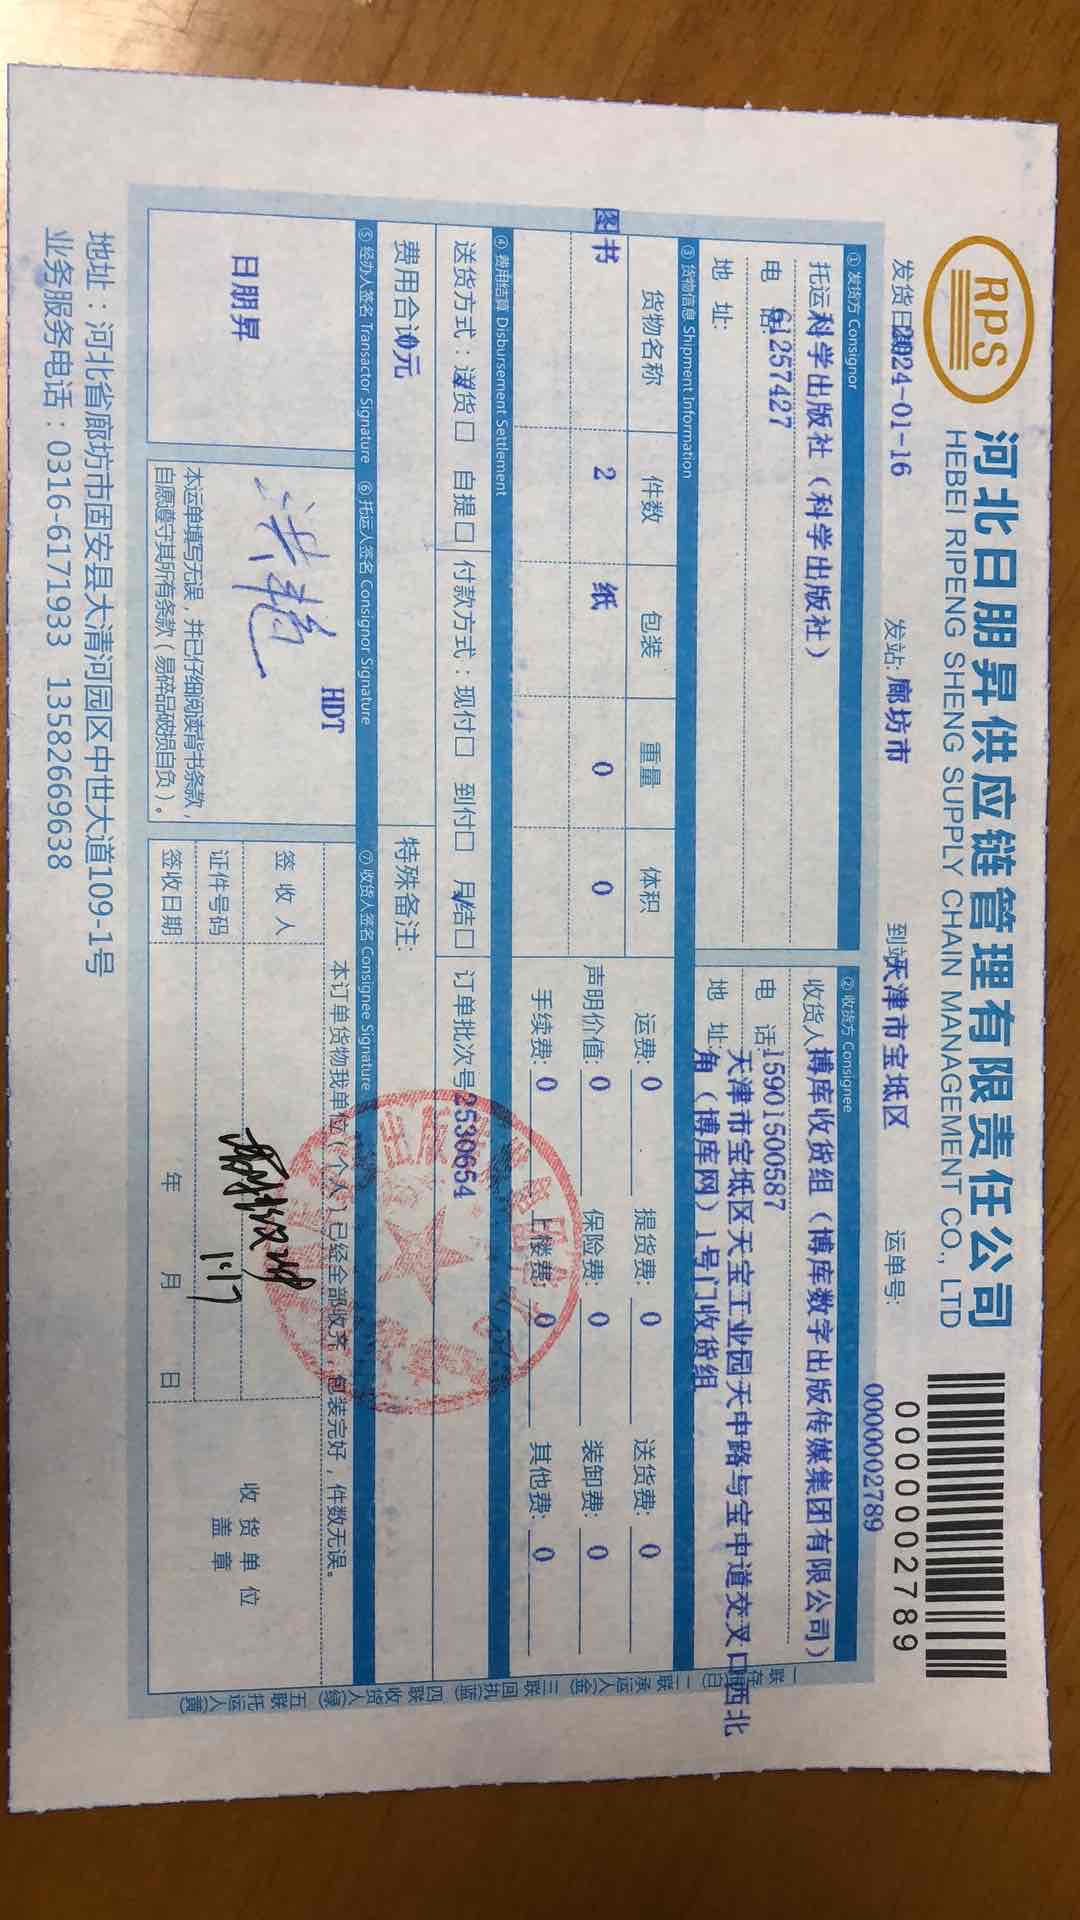 RPS
河北日朋昇供应链管理有限责任公司
HEBEI RIPENG SHENG SUPPLY CHAIN MANAGEMENT CO., LTD
0000002789
0000002789
发货日期 2024-01-16 发站: 廊坊市 到站 天津市宝坻区 运单号:
① 发货方 Consignor
托运 科学出版社（科学出版社）
电 话 61257427
地 址:
② 收货方 Consignee
收货人 博库收货组（博库数字出版传媒集团有限公司）
电 话: 15901500587
地 址: 天津市宝坻区天宝工业园天中路与宝中道交叉口西北
角（博库网）1号门收货组
③ 货物信息 Shipment Information
货物名称 件数 包装 重量 体积
图书 2 纸 0 0
运费: 0 提货费: 0 送货费: 0
声明价值: 0 保险费: 0 装卸费: 0
手续费: 0 上楼费: 0 其他费: 0
④ 费用结算 Disbursement Settlement
送货方式：送货□ 自提□ 付款方式：现付□ 到付□ 月结□ 订单批次号 2530654
费用合计 0元 特殊备注:
⑤ 经办人签名 Transactor Signature ⑥ 托运人签名 Consignor Signature ⑦ 收货人签名 Consignee Signature
日朋昇
HDT
本运单填写无误，并已仔细阅读背书条款，
自愿遵守其所有条款（易碎品破损自负）。
本订单货物我单位（个人）已经全部收齐，包装完好，件数无误。
签 收 人
证件号码
1.17
签收日期 年 月 日
收 货 单 位
盖 章
一联存根(白) 二联承运人(金) 三联回执(蓝) 四联收货人(绿) 五联托运人(黄)
地址：河北省廊坊市固安县大清河园区中世大道109-1号
业务服务电话：0316-6171933 13582669638